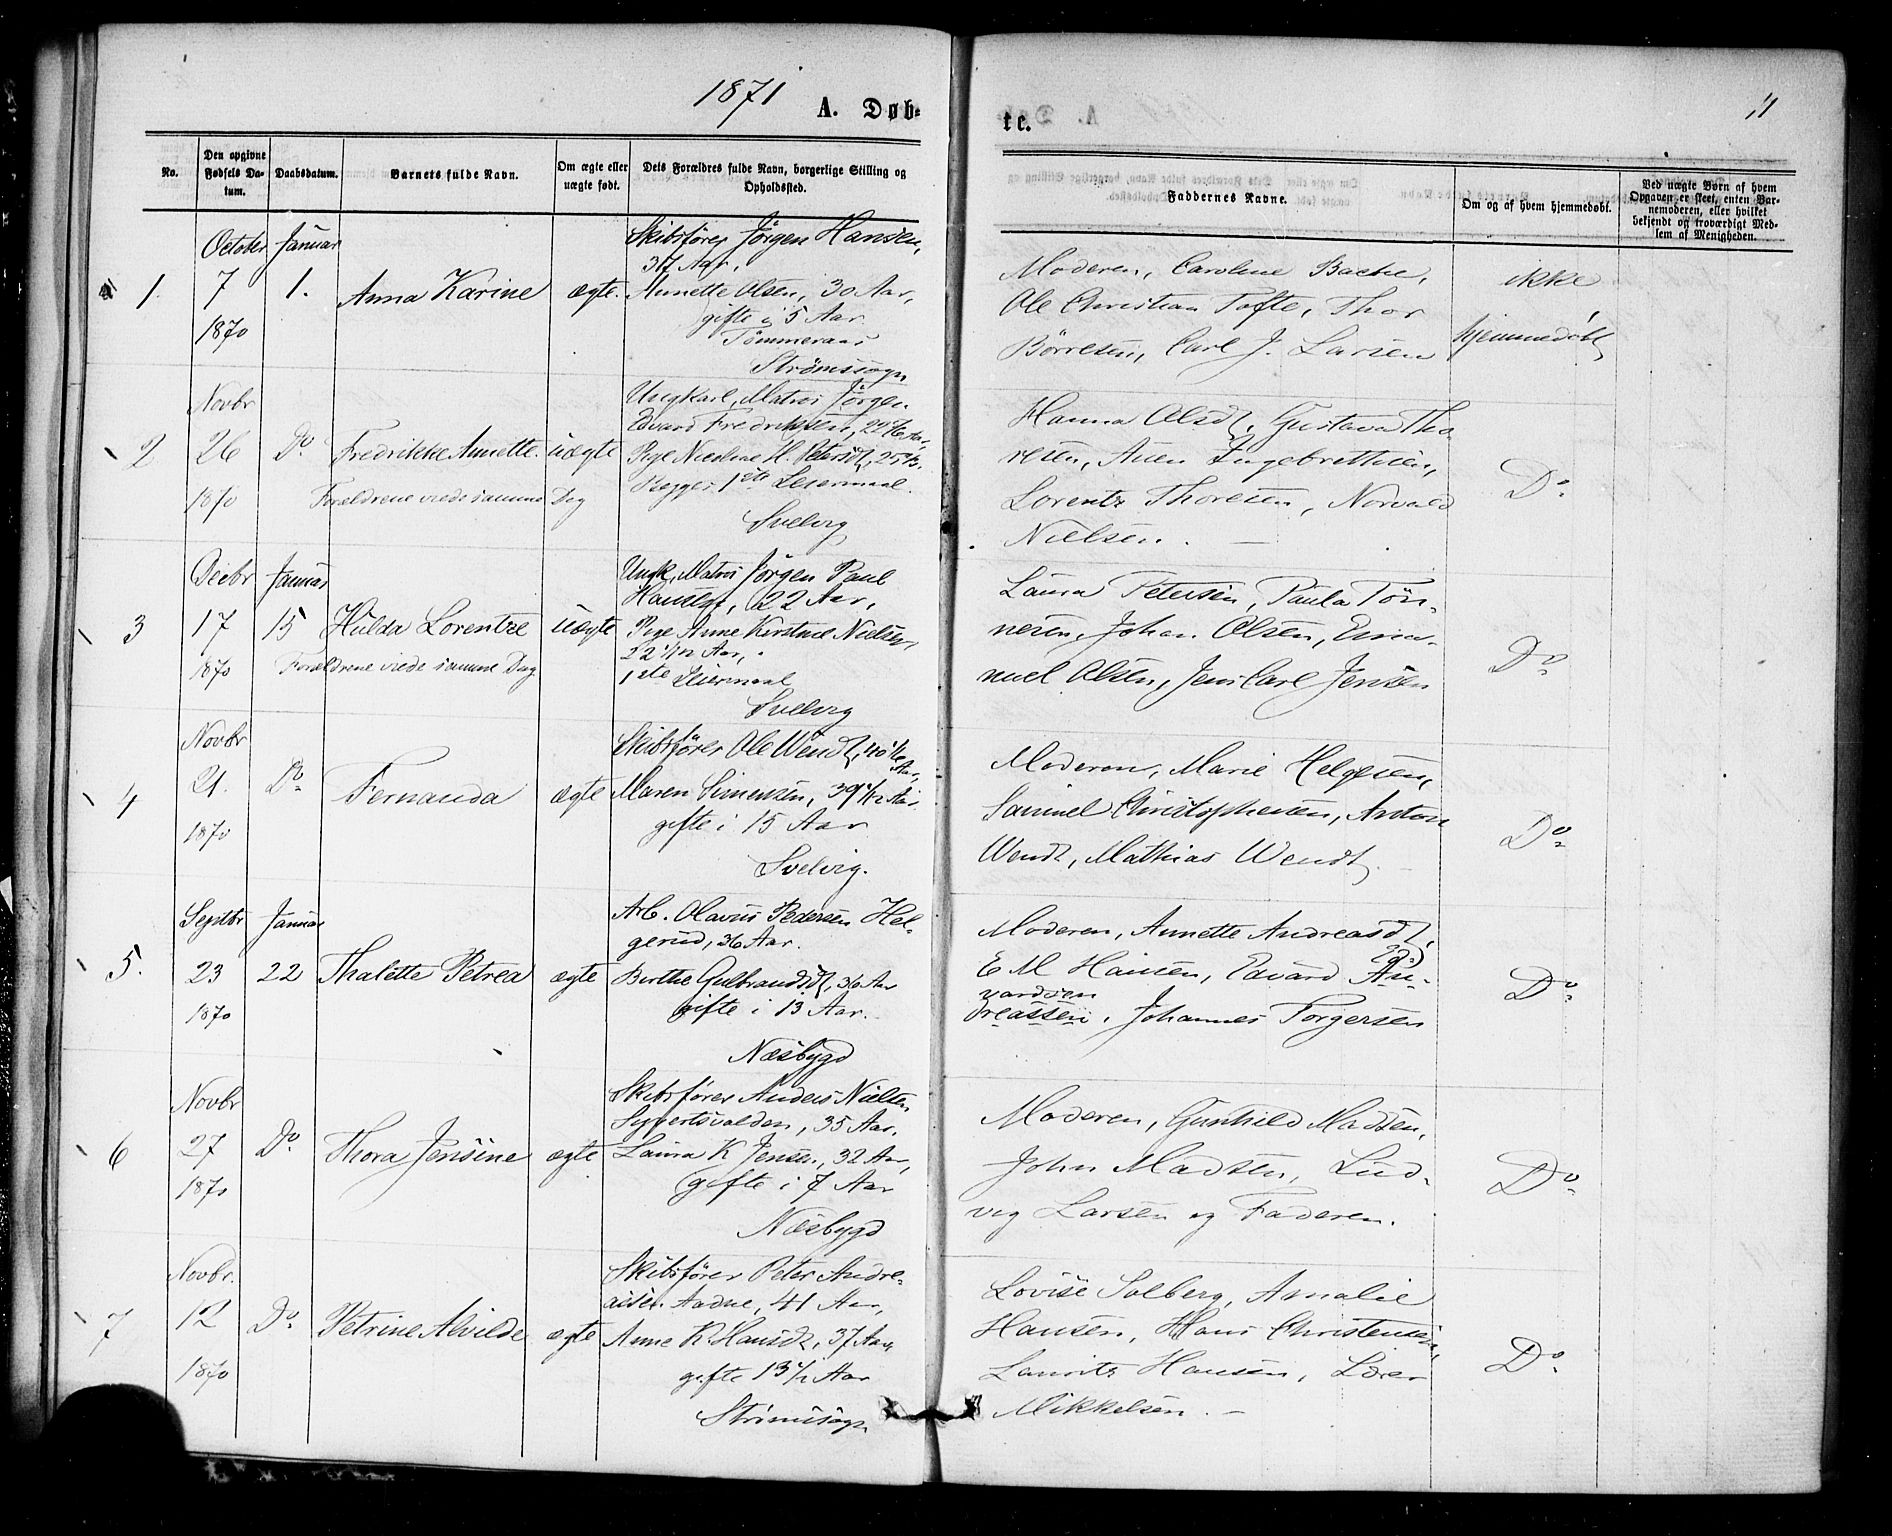 1871
A. Døb-
No.
Den opgivne Fødsels Datum.
Daabsdatum.
Barnets fulde Navn.
Om ægte eller uægte født.
Dets Forældres fulde Navn, borgerlige Stilling og Opholdssted.
October Januar
1. 7 1. Anna Karine ægte.
1870
Skibsfører Jørgen Hansen,
37 Aar,
Annette Olsen, 30 Aar,
gifte i 5 Aar
Tømmeraas
Strømssogn
Novbr
2 26 Do Fredrikke Annette. uægte
1870 Forældrene viede samme Dag
Ungkarl, Matros Jørgen
Edvard Fredriksen, 22 Aar,
Pige Nicoline H. Petersdt, 25
Begges 1ste Leiermaal.
Svelvig
Decbr Januar
3 17 15 Hulda Lorentze uægte
1870 Forældrene viede samme Dag.
Ungk. Matros Jørgen Paul
Hansen, 22 Aar,
Pige Anne Kirstine Nielsen,
22 Aar,
1ste Leiermaal
Svelvig
Novbr
4 21. Do Fernanda ægte
1870
Skibsfører Ole Wendt, 40 Aar,
Maren Simensen, 39 Aar,
gifte i 15 Aar
Svelvig.
Septbr Januar
5. 23 22 Thalette Petrea ægte
1870
Arb. Olavus Pedersen Hel-
gerud, 36 Aar.
Berthe Gulbrandsdt, 36 Aar
gifte i 13 Aar.
Næsbygd
Novbr
6 27 Do Thora Jensine ægte
1870
Skibsfører Anders Nielsen
Syvertsvolden, 35 Aar.
Laura K Jensen, 32 Aar,
gifte i 7 Aar
Næsbygd
Novbr.
7 12 Do Petrine Alvilde ægte
1870
Skibsfører Peter Andre-
assen Aadne, 41 Aar,
Anne K. Hansdt, 37 Aar,
gifte 13 1/2 Aar
Strømssogn
te.
Faddernes Navne.
Om og af hvem hjemmedøbt.
Ved uægte Børn af hvem Opgaven er skeet, enten Barnemoderen, eller hvilket bekjendt og troværdigt Medlem af Menigheden.
Moderen, Caroline Bache,
Ole Christian Tofte, Thor
Børresen, Carl J. Larsen
ikke
hjemmedøbt
Hanna Olsdt, Gustava Tho
resen, Auen Ingebrethsen,
Lorentz Thoresen, Norvald
Nielsen.
Do
Laura Petersen, Paula Tøn-
nesen, Johan Olsen, Ema-
nuel Olsen, Jens Carl Jensen
Do
Moderen, Marie Helgesen,
Samuel Christophersen, Anton
Wendt, Mathias Wendt
Do
Moderen, Annette Andreasdt,
E M Hansen, Edvard An-
dreassen, Johannes Torgersen
Do
Moderen, Gunhild Madsen,
John Madsen, Lud-
vig Larsen og Faderen.
Do
Lovise Solberg, Amalie
Hansen, Hans Christensen,
Laurits Hansen,
Mikkelsen.
Do